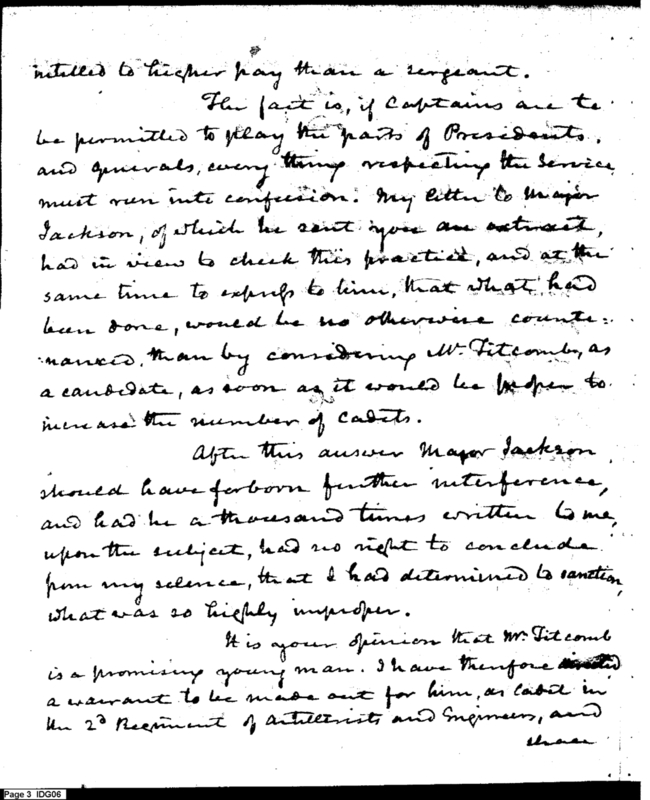 intitled to higher pay than a sergeant.
The fact is, if Captains are to
be permitted to play the parts of Presidents,
and generals, every thing respecting the Service
must run into confusion. My letter to Major
Jackson, of which he sent you an extract,
had in view to check this practice, and at the
same time to express to him, that what had
been done, would be no otherwise counte=
nanced, than by considering Mr. Titcomb, as
a candidate, as soon as it would be proper to
increase the number of Cadets.
After this answer Major Jackson
should have forborn further interference,
and had he a thousand times written to me,
upon the subject, had no right to conclude
from my silence, that I had determined to sanction,
what was so highly improper.
It is your opinion that Mr. Titcomb
is a promising young man. I have therefore directed
a warrant to be made out for him, as Cadet in
the 2d Regiment of Artillerists and Engineers, and
Page 3 IDG06